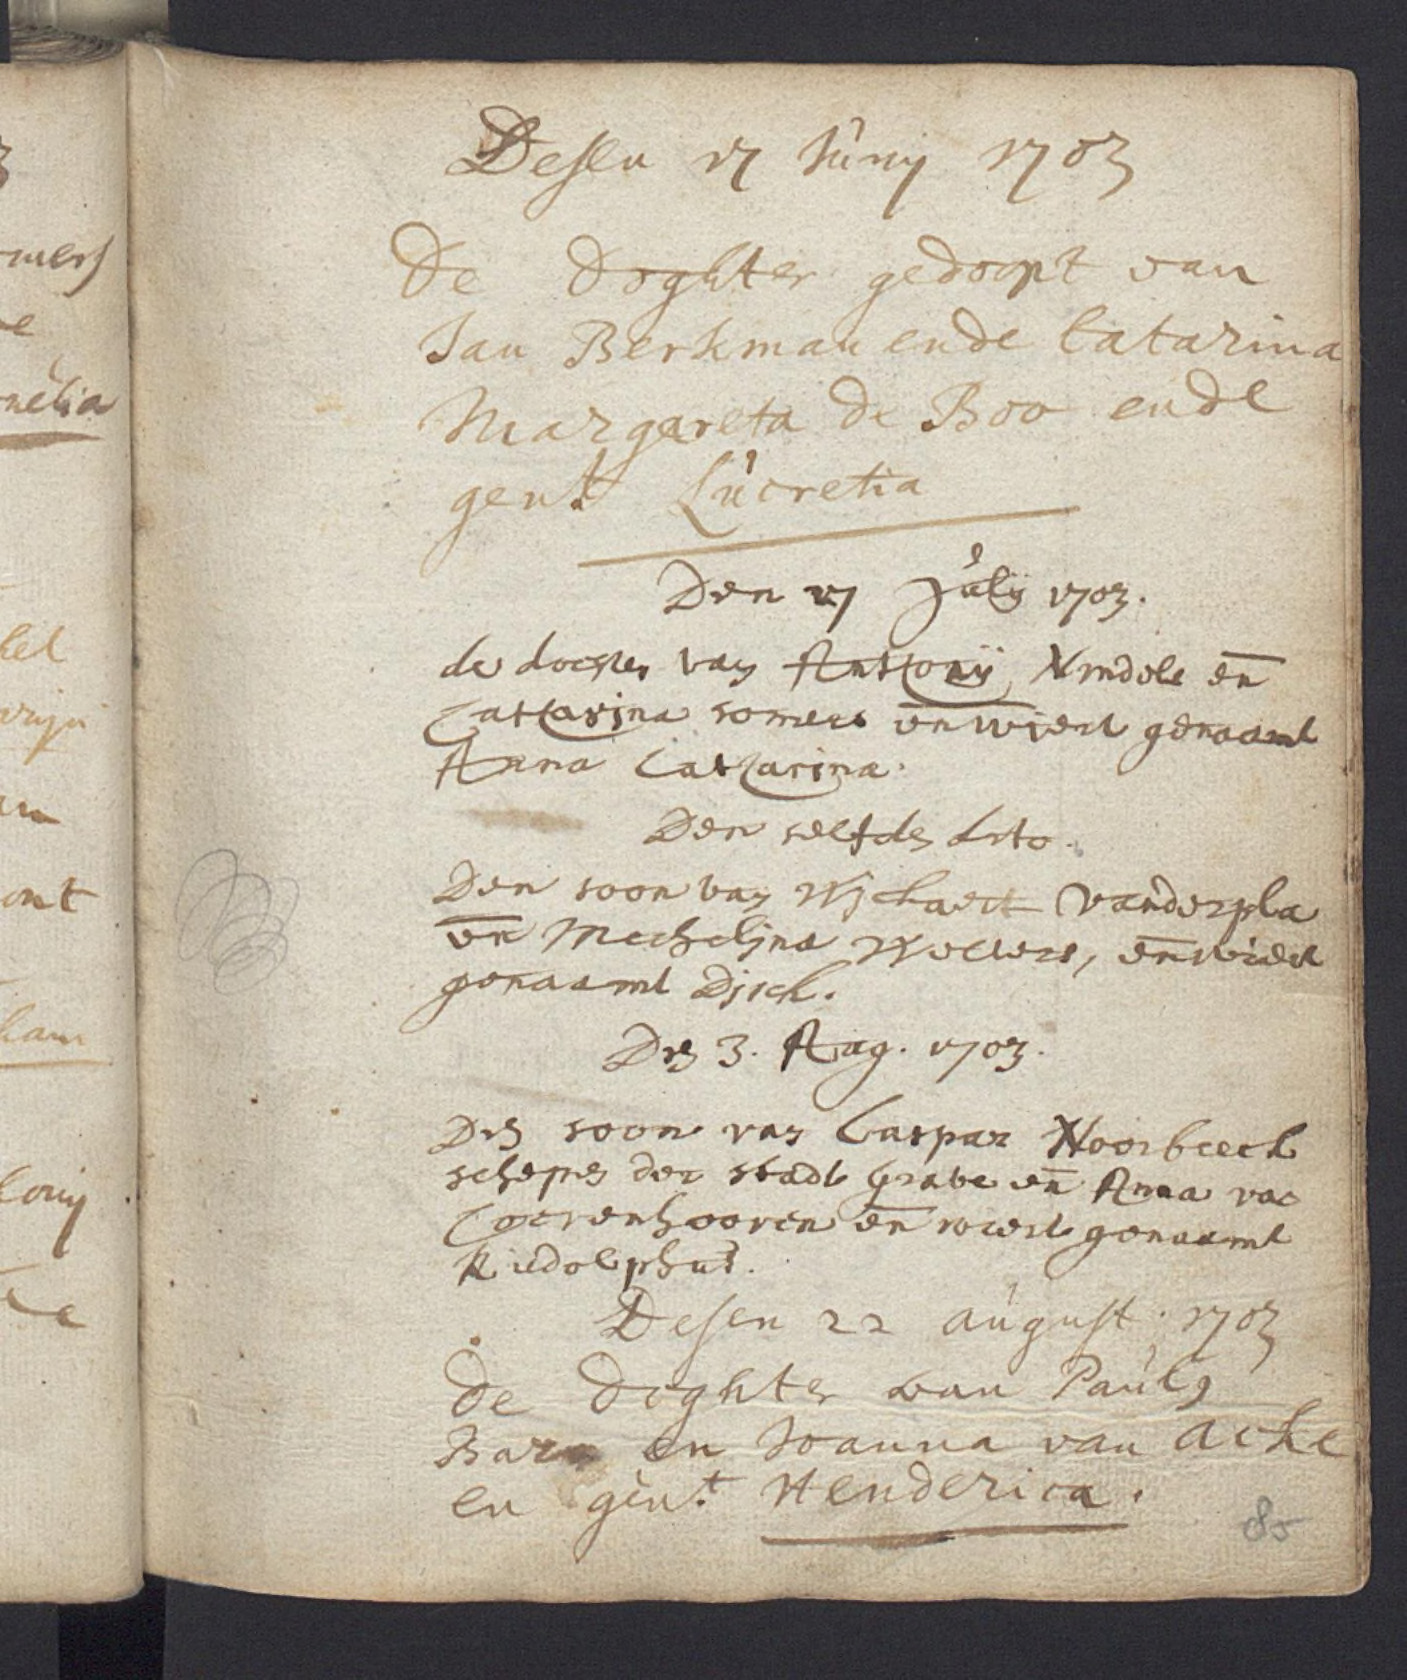 Desen 17 Juny 1703
De Doghter gedoopt van
Jan Berkman ende Catarina
Margareta de Boo ende
gent Lucretia
Den 17 July 1703.
de dochter van Anthonij en
Catharina somers en wiert genaamt
Anna Catharina.
Den selfden dito.
Den soon van Wichaert Vanderpla
en Mechelina Wolters, en wiert
genaamt Dirk.
Den 3. Aug. 1703.
Den soon van Caspar Noorbeeck
schepen der stadt Grave en Anna van
en wiert genaamt
Rudolphus.
Desen 22 august 1703
De Doghter van Pauls
en Joanna van Acke
en gent Henderica.
85
mers
e
nelia
ket
am
ont
ham